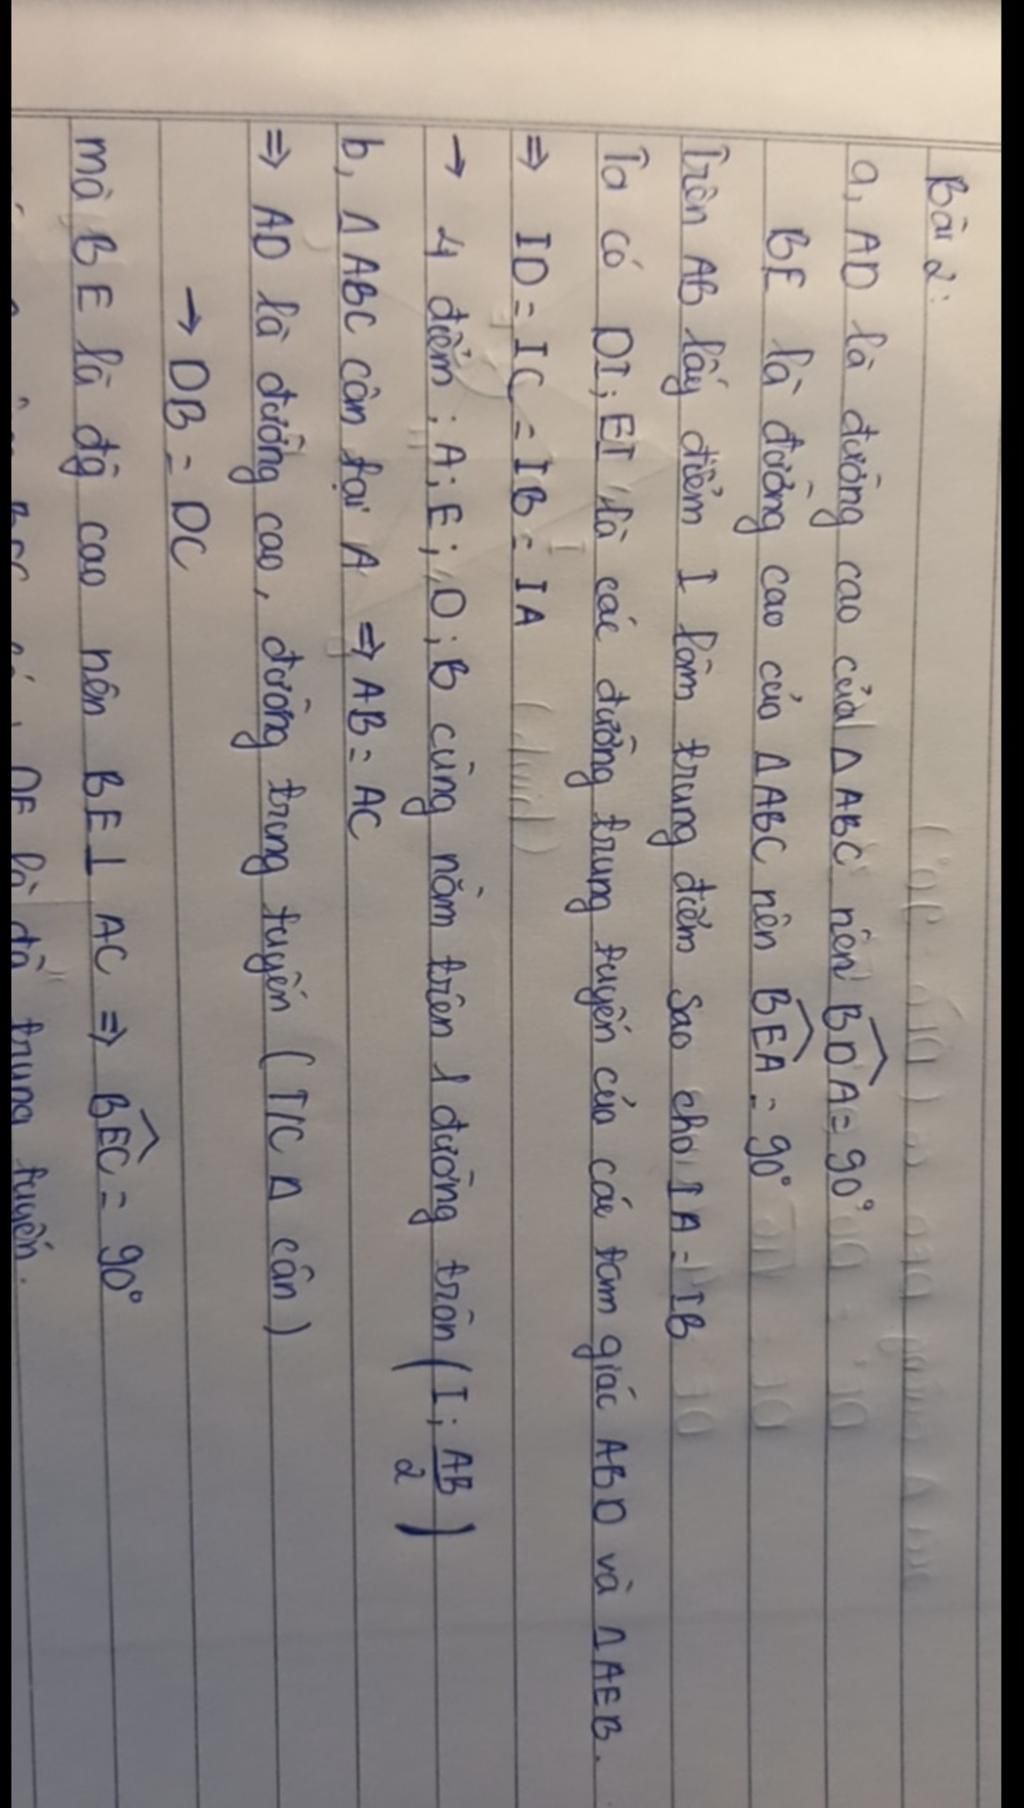 Bài 2:
a, AD là đường cao của Δ ABC nên BDA = 90°
BE là đường cao của Δ ABC nên BEA = 90°
Trên AB lấy điểm I làm trung điểm sao cho IA = IB
Ta có DI; EI là các đường trung tuyến của các tam giác ABD và Δ AEB.
⇒ ID = IC = IB = IA
→ 4 điểm; A; E; D; B cùng nằm trên 1 đường tròn (I; AB/2)
b, Δ ABC cân tại A ⇒ AB = AC
⇒ AD là đường cao, đường trung tuyến (T/C Δ cân)
→ DB = DC
mà BE là đg cao nên BE ⊥ AC ⇒ BEC = 90°
DE là đg trung tuyến.